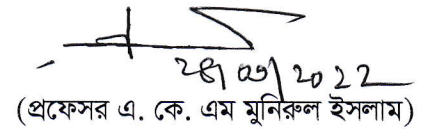 ২৪/০৩/2022
(প্রফেসর এ. কে. এম মুনিরুল ইসলাম)